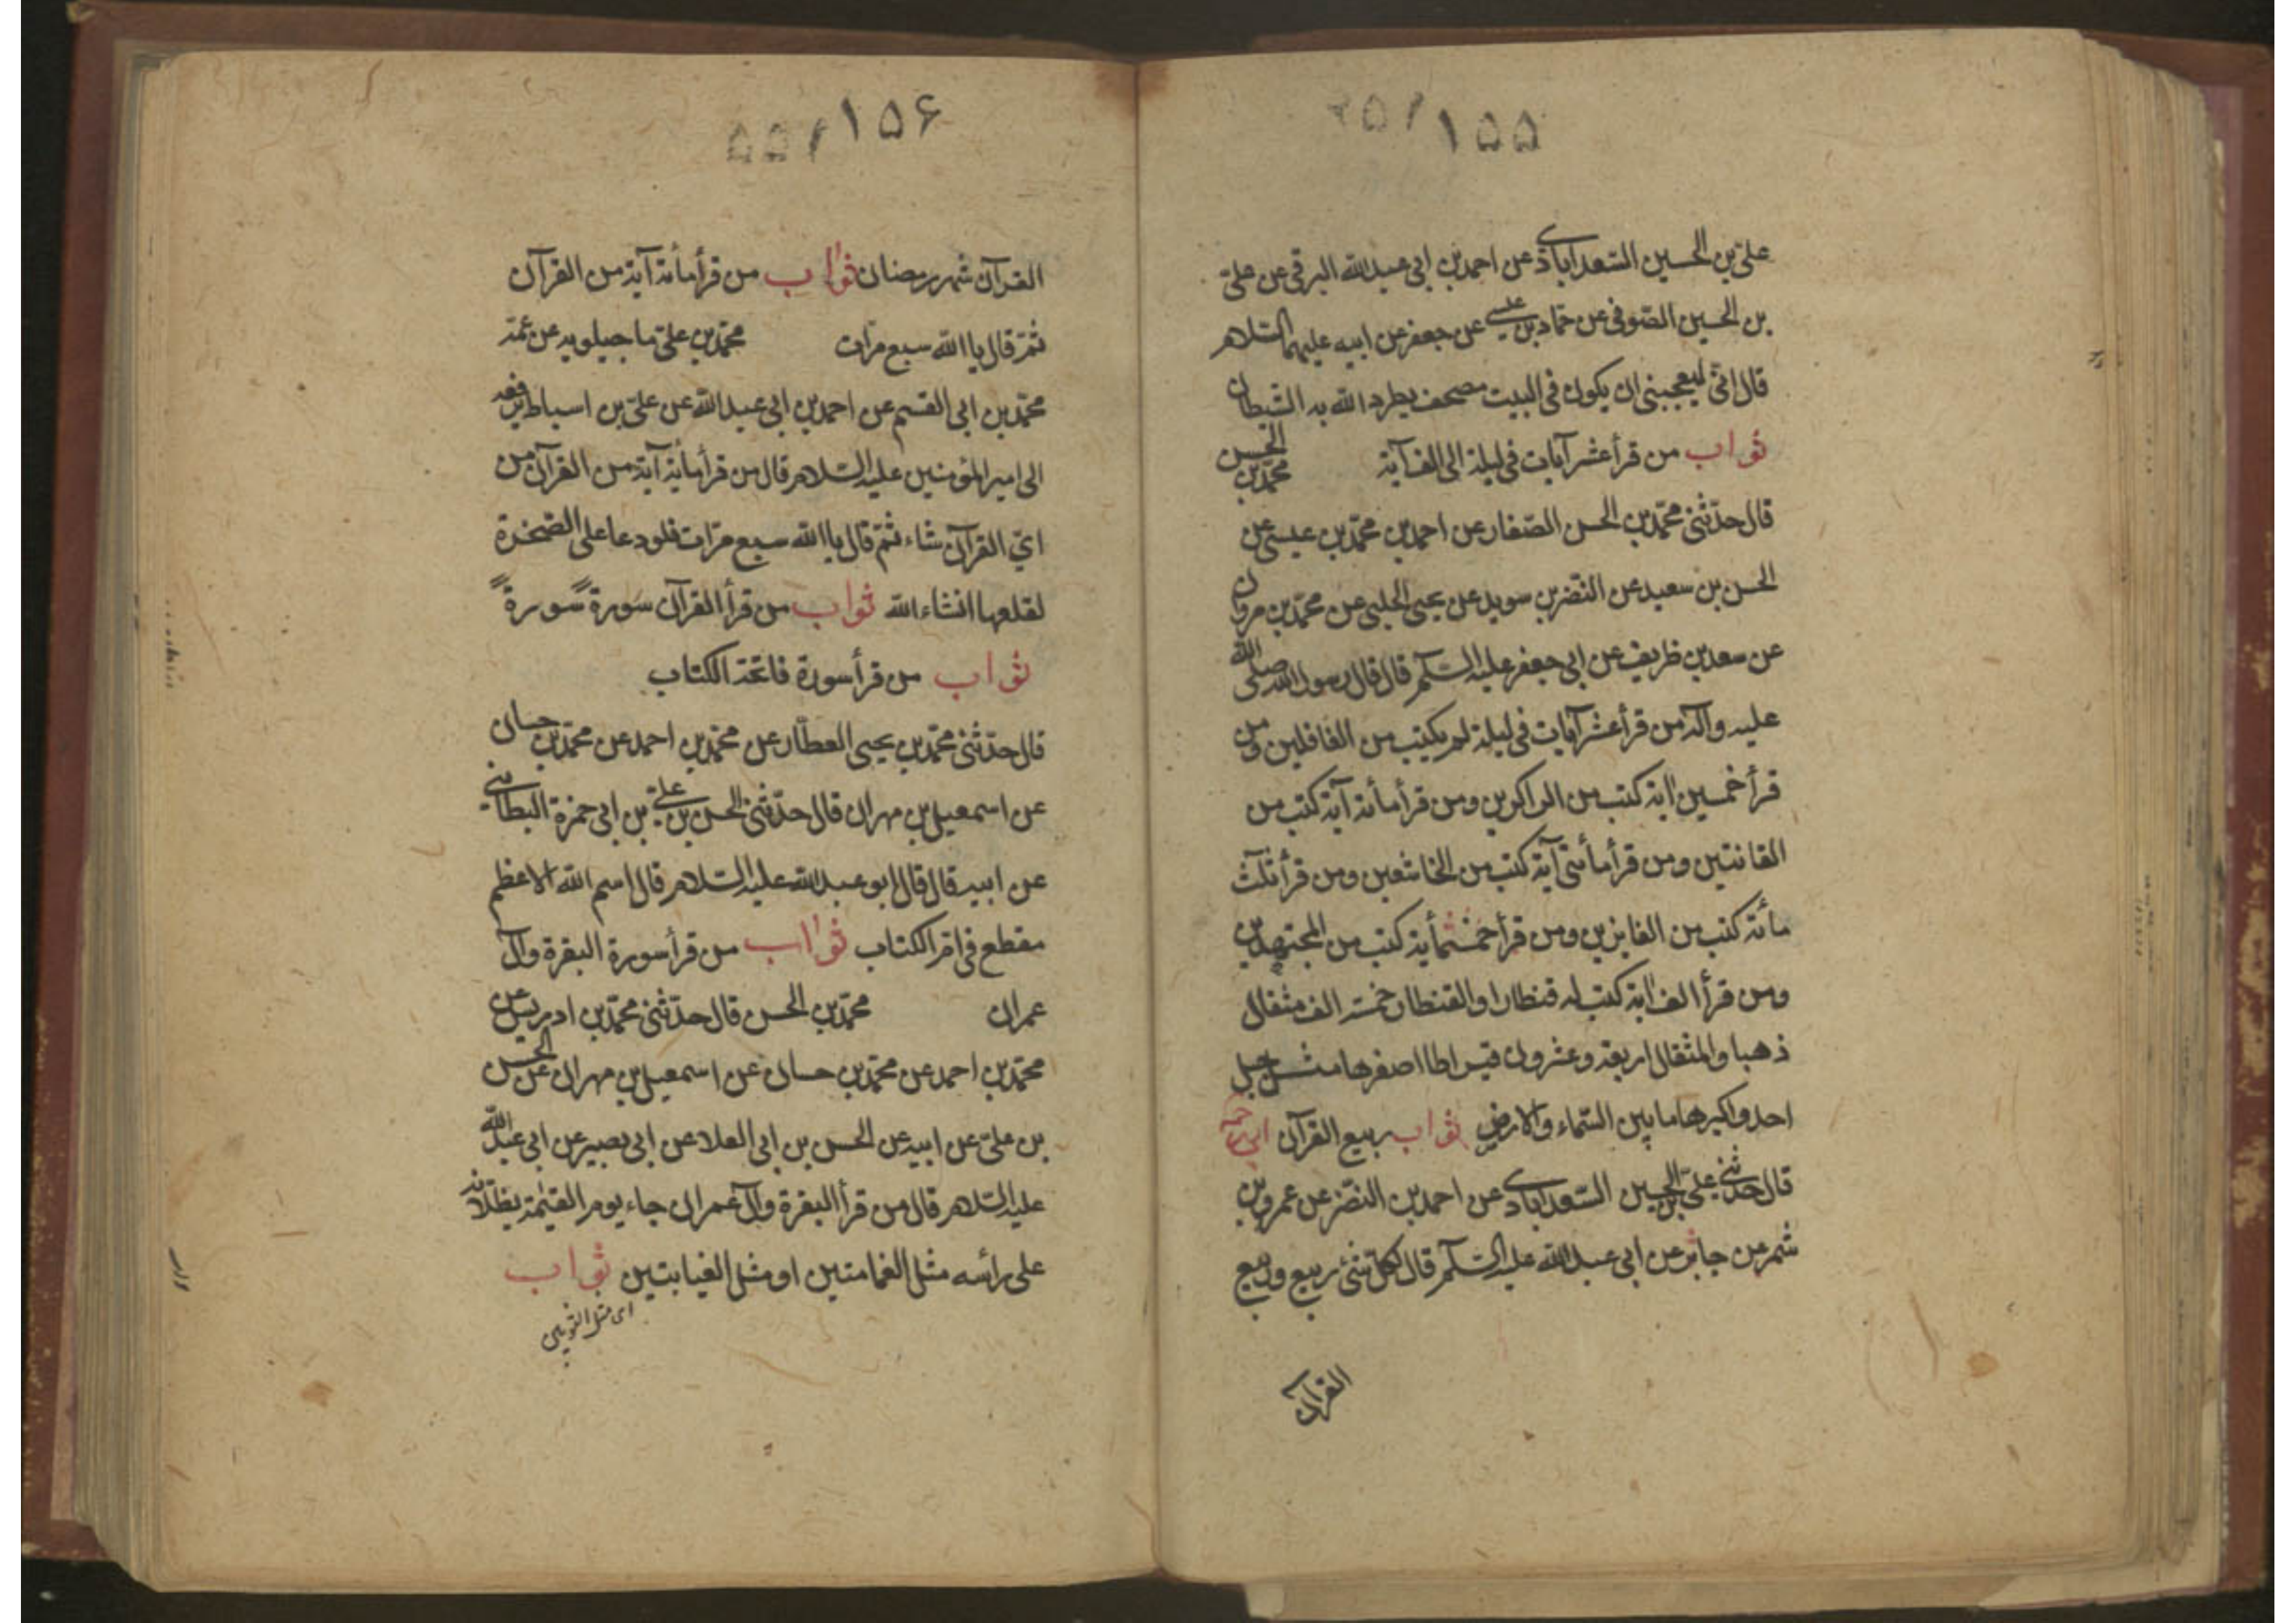 ۱۵۵
علي بن الحسين السعدآبادي عن احمد بن ابي عبد الله البرقي عن علي
بن الحسين الصوفي عن حماد بن عيسى عن جعفر عن ابيه عليهما السلام
قال انّي ليعجبني ان يكون في البيت مصحف يطرد الله به الشيطان
ثواب من قرأ عشر آيات في ليلة الى الف آية محمّد بن الحسن
قال حدّثني محمّد بن الحسن الصّفار عن احمد بن محمّد بن عيسى عن
الحسن بن سعيد عن النّضر بن سويد عن يحيى الحلبي عن محمّد بن مروان
عن سعد بن ظريف عن ابي جعفر عليه السّلم قال قال رسول الله صلى الله
عليه وآله من قرأ عشر آيات في ليلة لم يكتب من الغافلين ومن
قرأ خمسين اية كتب من الذاكرين ومن قرأ مأئة آية كتب من
القانتين ومن قرأ مأتي آية كتب من الخاشعين ومن قرأ ثلث
مائة كتب من الفايزين ومن قرأ خمسمأية كتب من المجتهدين
ومن قرأ الف اية كتب له قنطار والقنطار خمسة الف مثقال
ذهبا والمثقال اربعة وعشرون قيراطا اصغرها مثل جبل
احد واكبرها ما بين السّماء والارض ثواب ربيع القرآن ابي رحمه
قال حدثني علي بن الحسين السّعدآبادي عن احمد بن النضر عن عمرو بن
شمر عن جابر عن ابي عبد الله عليه السّلم قال لكل شئ ربيع وربيع
القرآن
۱۵۶
القرآن شهر رمضان ثواب من قرأ مأئة آية من القرآن
ثمّ قال يا الله سبع مرّات محمّد بن علي ماجيلويه عن عمّه
محمّد بن ابي القسم عن احمد بن ابي عبد الله عن علي بن اسباط يرفعه
الى امير المؤمنين عليه السّلام قال من قرأ مأية آية من القرآن من
ايّ القرآن شاء ثمّ قال يا الله سبع مرّات فلو دعا على الصّخرة
لقلعها انشاء الله ثواب من قرأ القرآن سورة سورة
ثواب من قرأ سورة فاتحة الكتاب
قال حدّثني محمّد بن يحيى العطّار عن محمّد بن احمد عن محمّد بن حسان
عن اسمعيل بن مهران قال حدّثني الحسن بن علي بن ابي حمزة البطائني
عن ابيه قال قال ابو عبد الله عليه السّلام قال اسم الله الاعظم
مقطع في ام الكتاب ثواب من قرأ سورة البقرة وآل
عمران محمّد بن الحسن قال حدّثني محمّد بن ادريس عن
محمّد بن احمد عن محمّد بن حسان عن اسمعيل بن مهران عن الحسن
بن علي عن ابيه عن الحسن بن ابي العلا عن ابي بصير عن ابي عبد الله
عليه السّلام قال من قرأ البقرة وآل عمران جاء يوم القيمة يظلّانه
على رأسه مثل الغمامتين او مثل الغيابتين ثواب